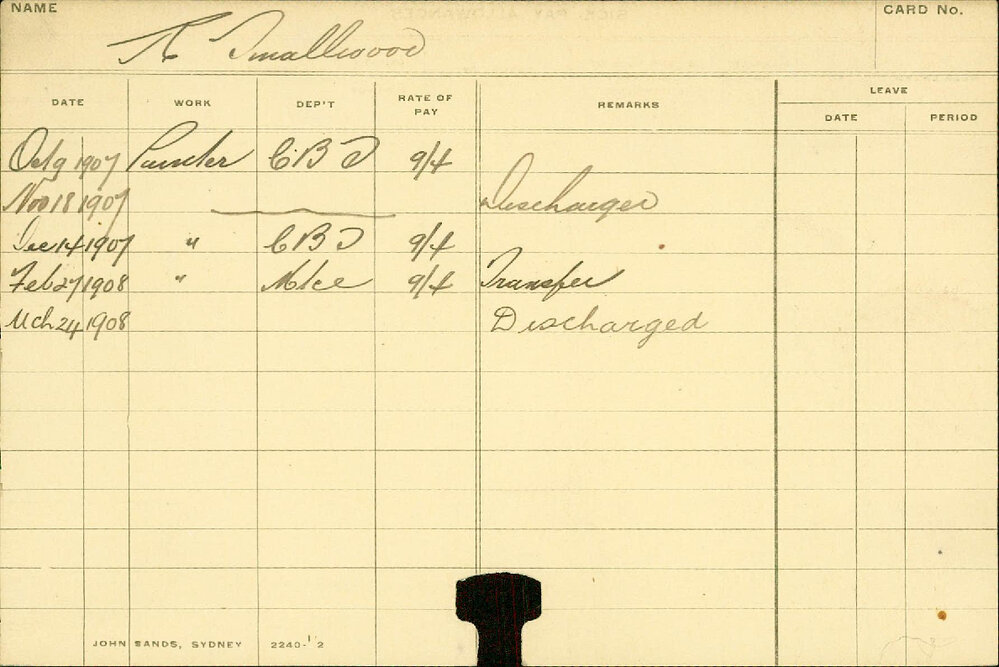 NAME
CARD No.
Smallwood
DATE WORK DEP'T RATE OF PAY REMARKS LEAVE
DATE PERIOD
Oct 9 1907 Painter CBD 9/4
Nov 18 1907 Discharged
Dec 14 1907 " CBD 9/4
Feb 27 1908 " Mtce 9/4 Transfer
Mch 24 1908 Discharged
JOHN SANDS, SYDNEY 2240-12